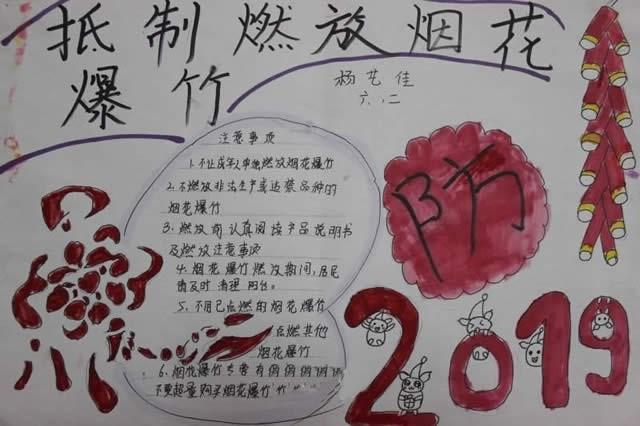 抵制燃放烟花
爆竹
杨艺佳
六.二
注意事项
1.不让成年人中地燃放烟花爆竹
2.不燃放非法生产或达禁品种的
烟花爆竹
3.燃放前认真阅读产品说明书
及燃放注意事项
4.烟花爆竹燃放期间,居民
请及时清理阳台。
5.不用已点燃的烟花爆竹
点燃其他
烟花爆竹
6.烟花爆竹
不要超量购买烟花爆竹
防
2019